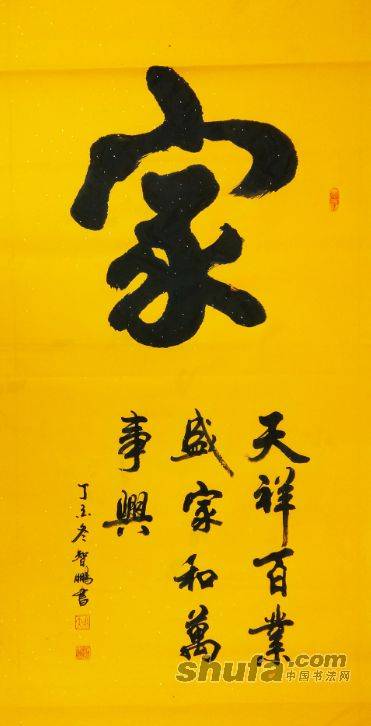 家
天祥百業
盛家和萬
事興
丁亥冬智鵬書
shufa.com
中国书法网